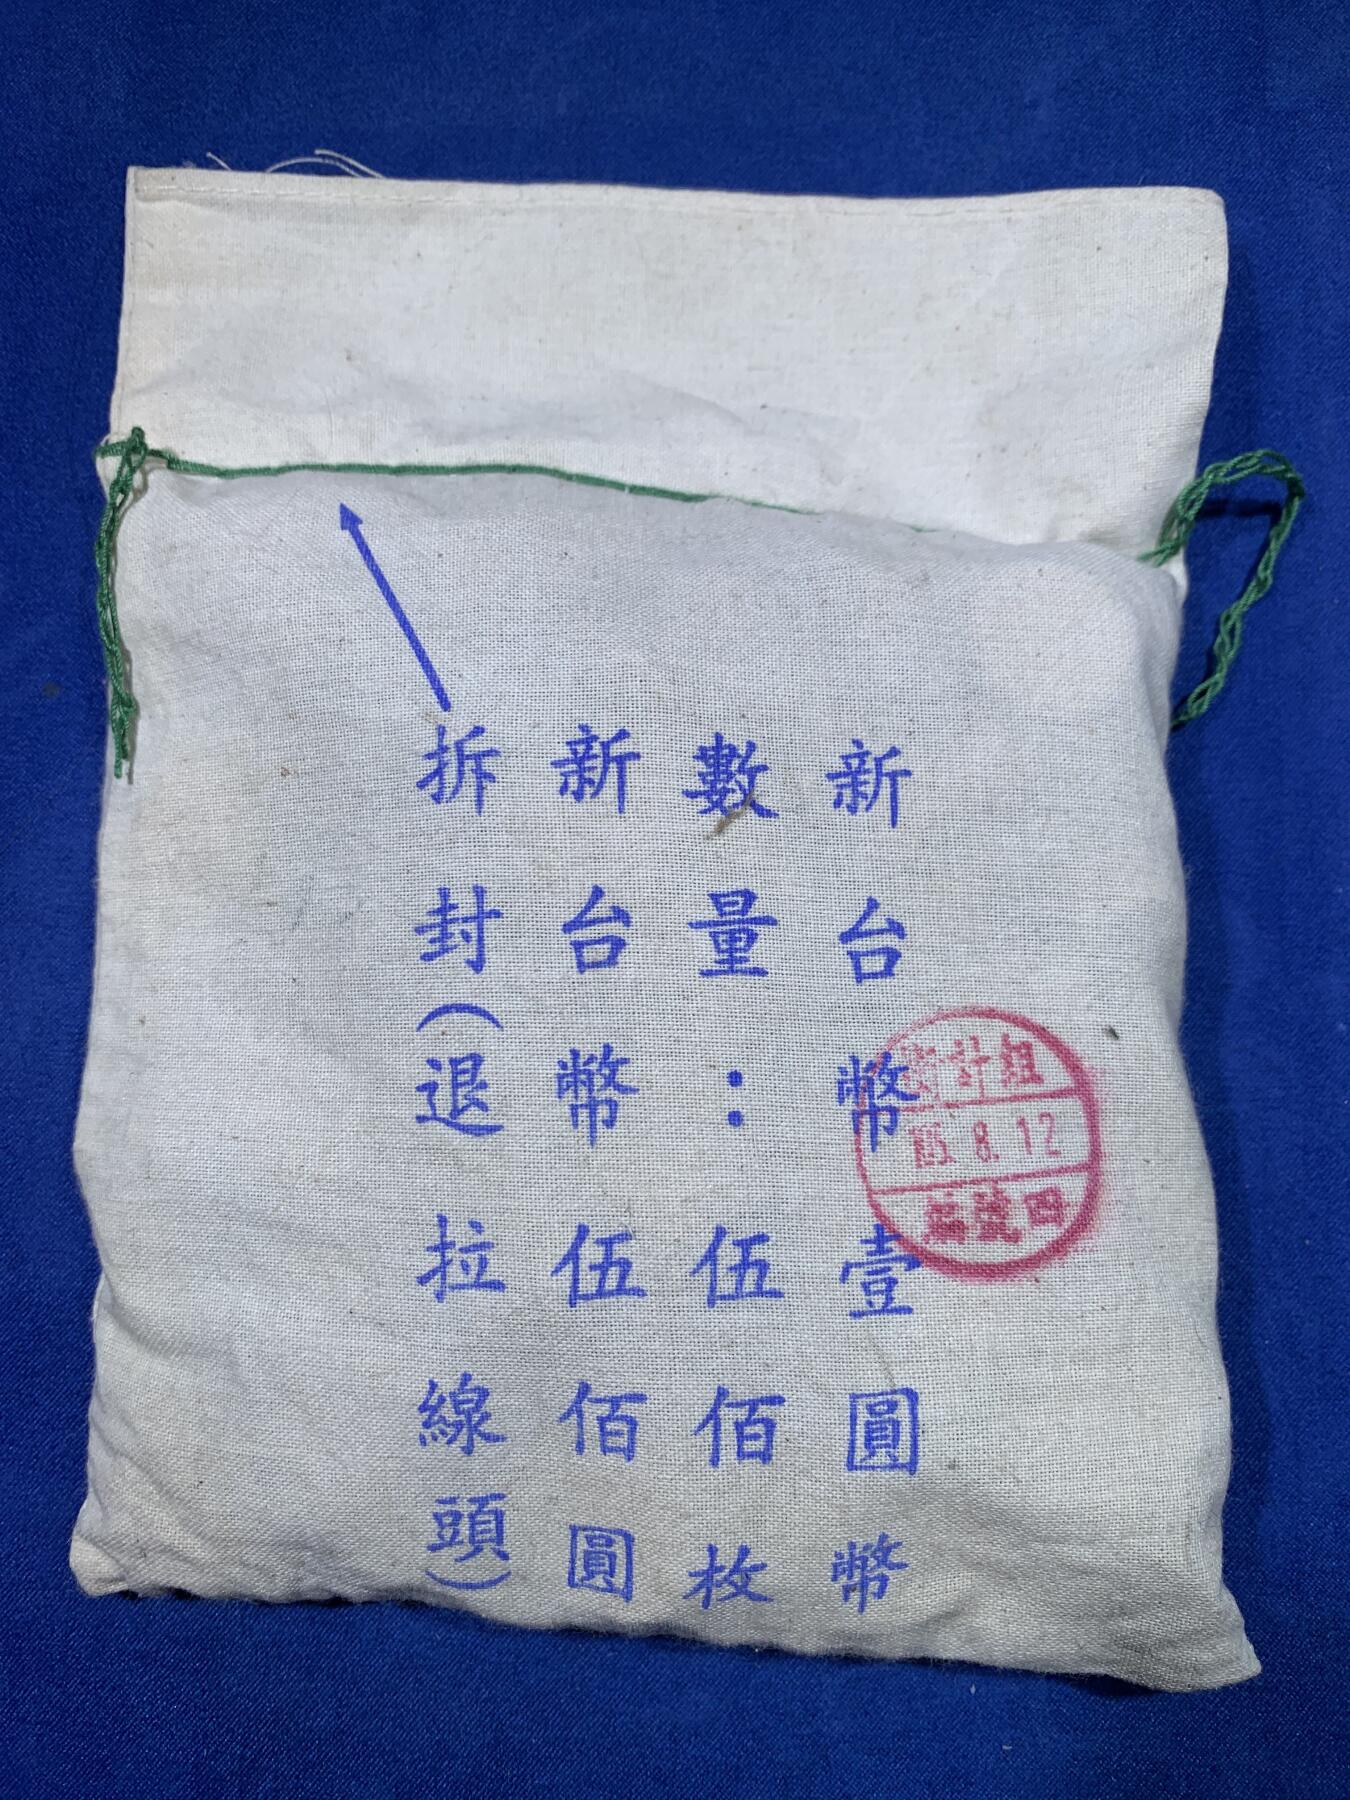 新台幣壹圓幣
數量：伍佰枚
新台幣伍佰圓
拆封（退拉線頭）
計組
8.12
號四